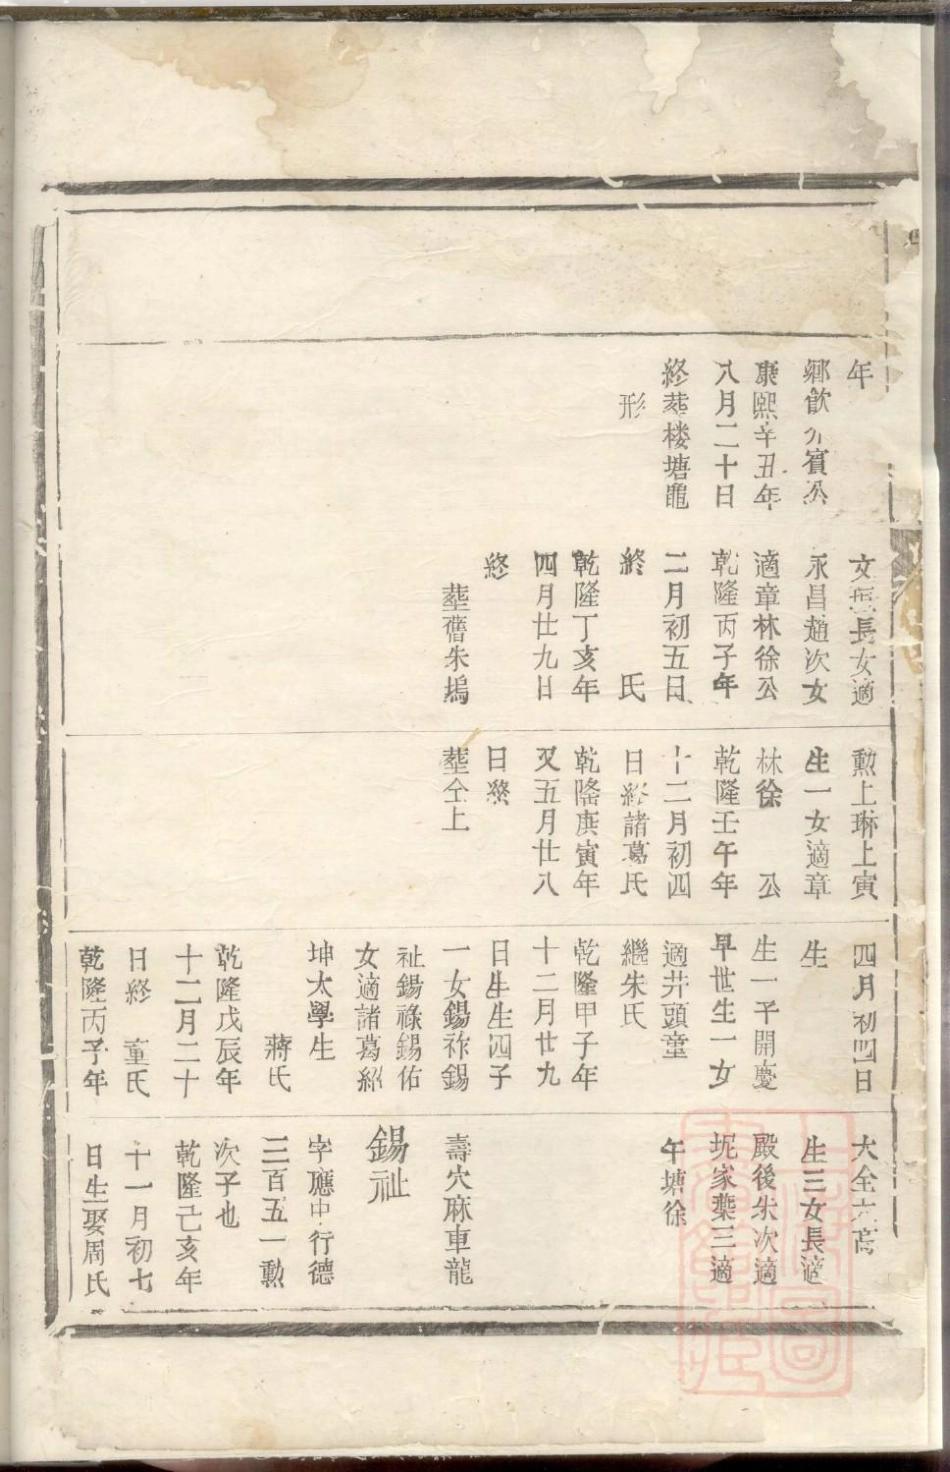 年
鄉飲介賓公
康熙辛丑年
八月二十日
終葬楼塘黽
形
文 長女適
永昌趙次女
適章林徐公
乾隆丙子年
二月初五日
終 氏
乾隆丁亥年
四月廿九日
終
塟舊朱塢
勲上琳上寅
生一女適章
林徐 公
乾隆壬午年
十二月初四
日終諸葛氏
乾隆庚寅年
又五月廿八
日終
塟仝上
四月初四日
生
生一子開慶
早世生一女
適井頭童
繼朱氏
乾隆甲子年
十二月廿九
日生生四子
一女錫祚錫
祉錫祿錫佑
女適諸葛紹
坤太學生
蔣氏
乾隆戊辰年
十二月二十
日終 童氏
乾隆丙子年
大全 高
生三女長適
殿後朱次適
坭家葉三適
午塘徐
壽穴麻車龍
錫祉
字應中行德
三百五一勲
次子也
乾隆己亥年
十一月初七
日生娶周氏